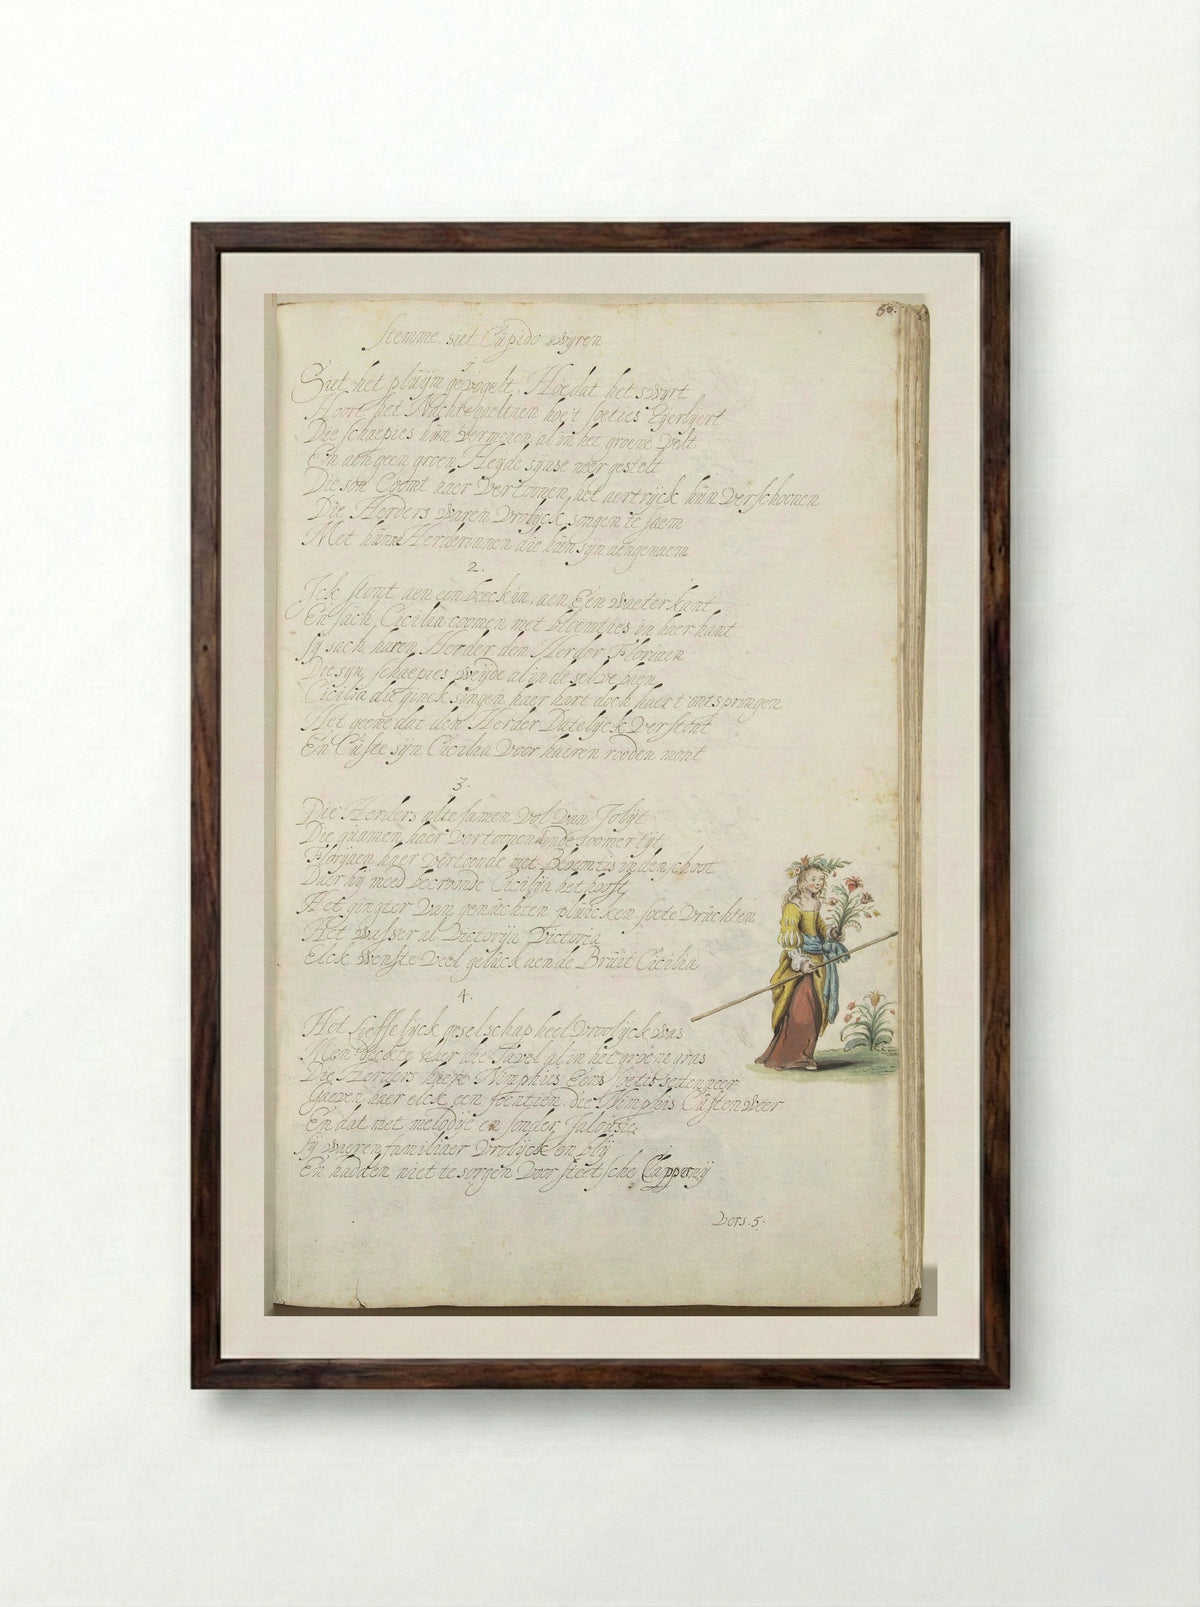 Stemme. siet Cupido wijren
Siet het pluijm gevogelt, Hoe dat het swijrt
Hoort het Nachtegaeltien hoe't soeties
Die schaepies hun vermaen al in het groene velt
En geen groen Heyde sijnse neer gestelt
Die son Coomt haer vertoonen, het aertrijck hun verschoonen
Die Herders waren vrolijck songen te saem
Met hunne Herderinnen die hun sijn aengenaem
2.
Ick stont aen een beeck in, aen Een waeter kant
En sach Cicilia coomen met bloemties in haer hant
Sy sach haren Herder, den Herder Floriaen
Die sijn schaepies weijde al in de selve baen
Cicilia die ginck singen haer hart doch haer t'ontspringen
Het geene dat den Herder Datelijck verstont
En Custe sijn Cicilia voor haeren rooden mont
3.
Die Herders alte samen vol van Jolijt
Die quamen haer vertoonen inde soomer tijt
Florijaen haer vertoonde met in den schoot
Daer hij med becroonde Cicilija het hooft
Het van genuchten plucken soete vruchten
Het was al Victorija Victoria
Elck wenste veel geluck aen de Bruit Cicilia
4.
Het lieffelijck geselschap heel vroolijck was
Men deckte daer die Tavel al in het groene gras
Die Herders haere Nimphies Eens soeties seten neer
Gaeven haer elck een soentien die Nimphies Custen weer
En dat met melodije en sonder Jalousie
Sy waeren familiaer vrolijck en blij
En hadden niet te sorgen voor steetsche Capperij
Vers. 5.